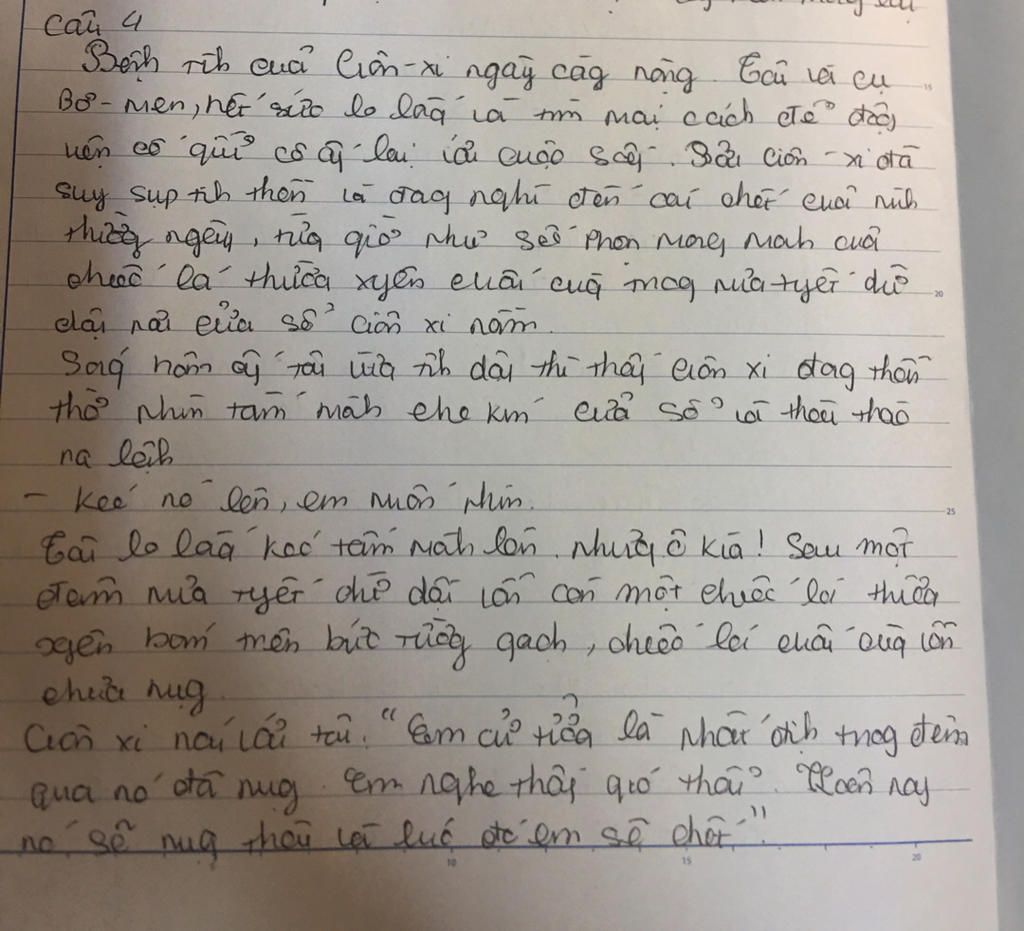 Câu 4
Bệnh tình của Giôn-xi ngày càng nặng. Tôi và cụ
Bơ-men, hết sức lo lắng và tìm mọi cách để động
viên cô quý cô ấy lại với cuộc sống. Bởi Giôn-xi đã
suy sụp tinh thần và đang nghĩ đến cái chết của mình
thường ngày, từng giờ như số phận mỏng manh của
chiếc lá thường xuyên cuối cùng trong mưa tuyết dữ
dội nơi cửa sổ Giôn xi nằm.
Sáng hôm ấy tôi vừa tỉnh dậy thì thấy Giôn xi đang thẫn
thờ nhìn tấm mành che kín cửa sổ và thều thào
ra lệnh
- Kéo nó lên, em muốn nhìn.
Tôi lo lắng kéo tấm mành lên. Nhưng ô kìa! Sau một
đêm mưa tuyết dữ dội vẫn còn một chiếc lá thường
xuyên bám trên bức tường gạch, chiếc lá cuối cùng vẫn
chưa rụng.
Giôn xi nói với tôi. "Em cứ tưởng là nhất định trong đêm
qua nó đã rụng. Em nghe thấy gió thổi? Hôm nay
nó sẽ rụng thôi và lúc đó em sẽ chết".